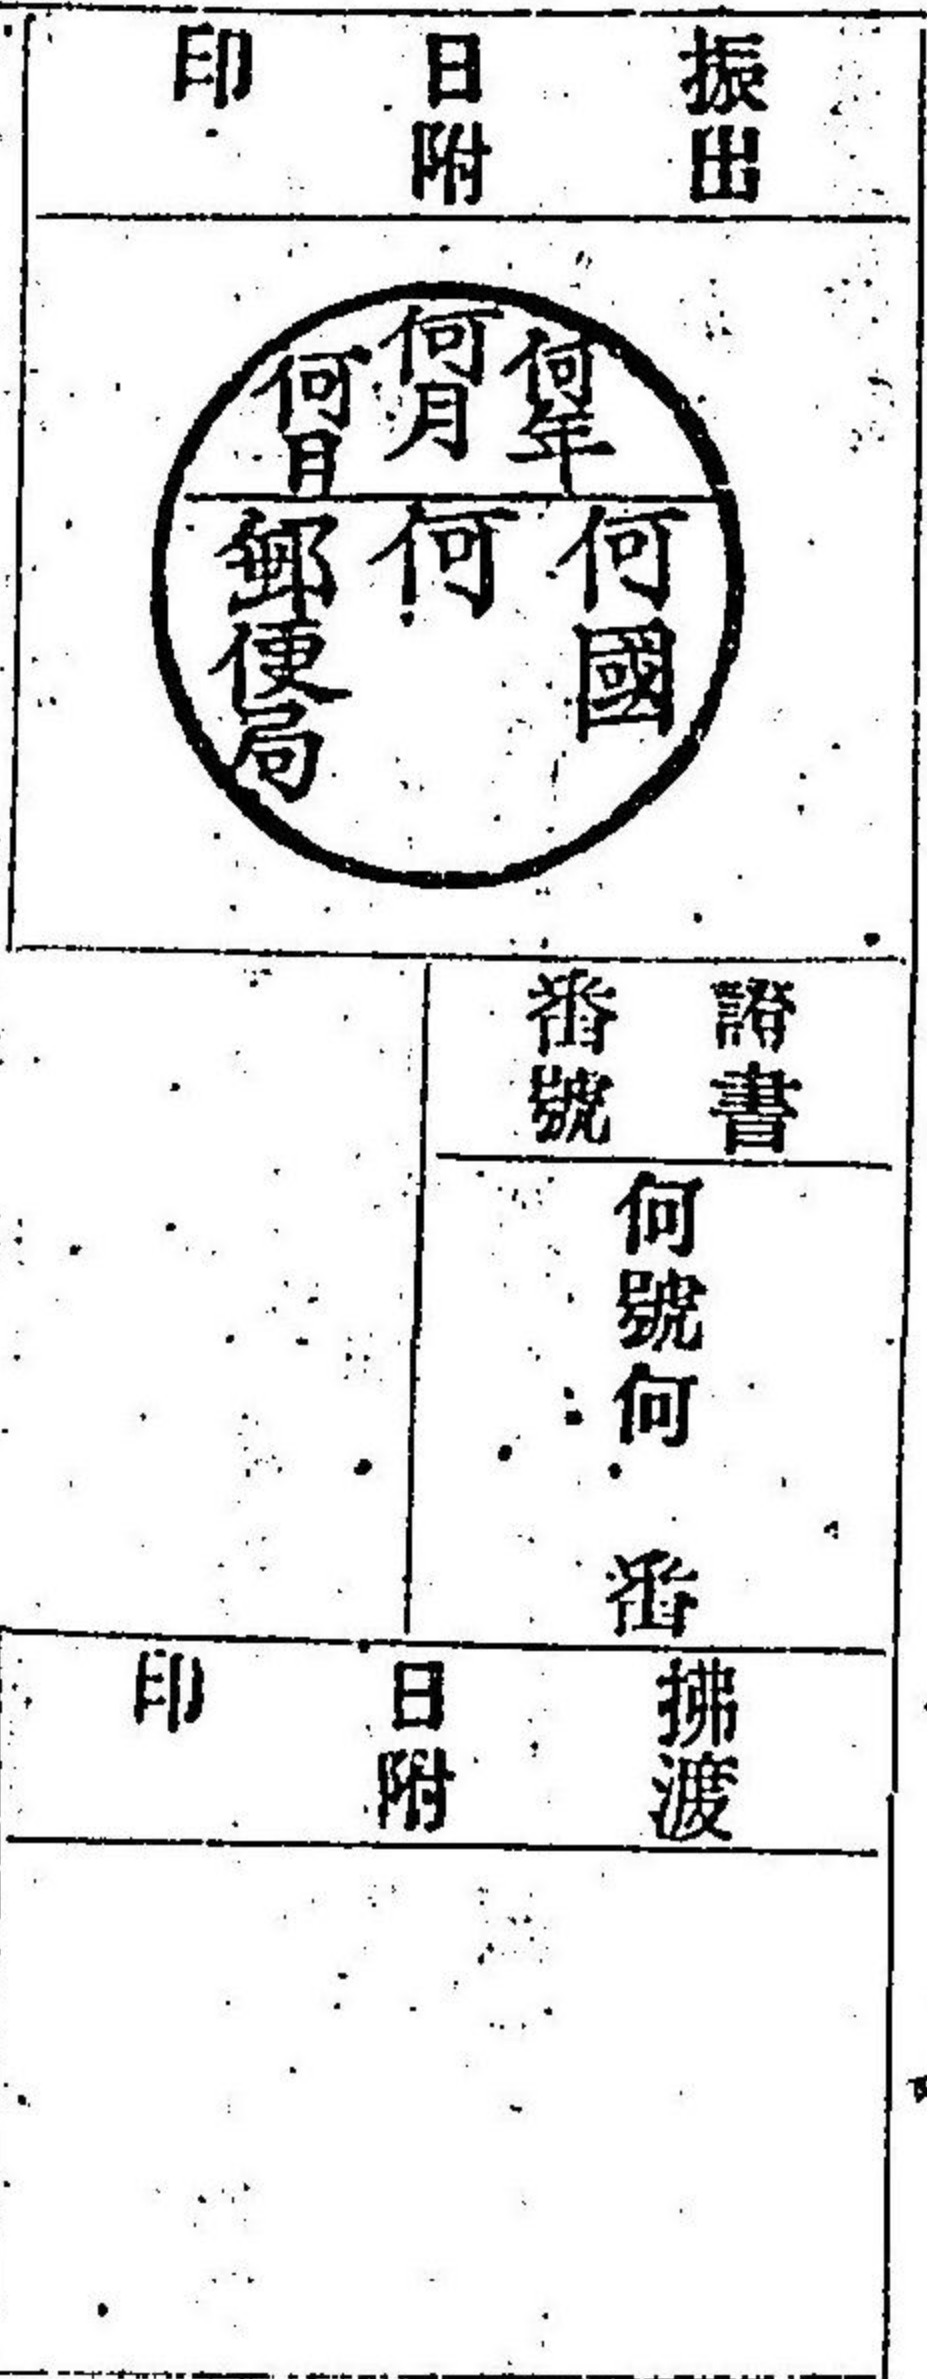 振出
日附
印
何年
何月
何日
何國
何
郵便局
證書
番號
何號何 番
拂渡
日附
印